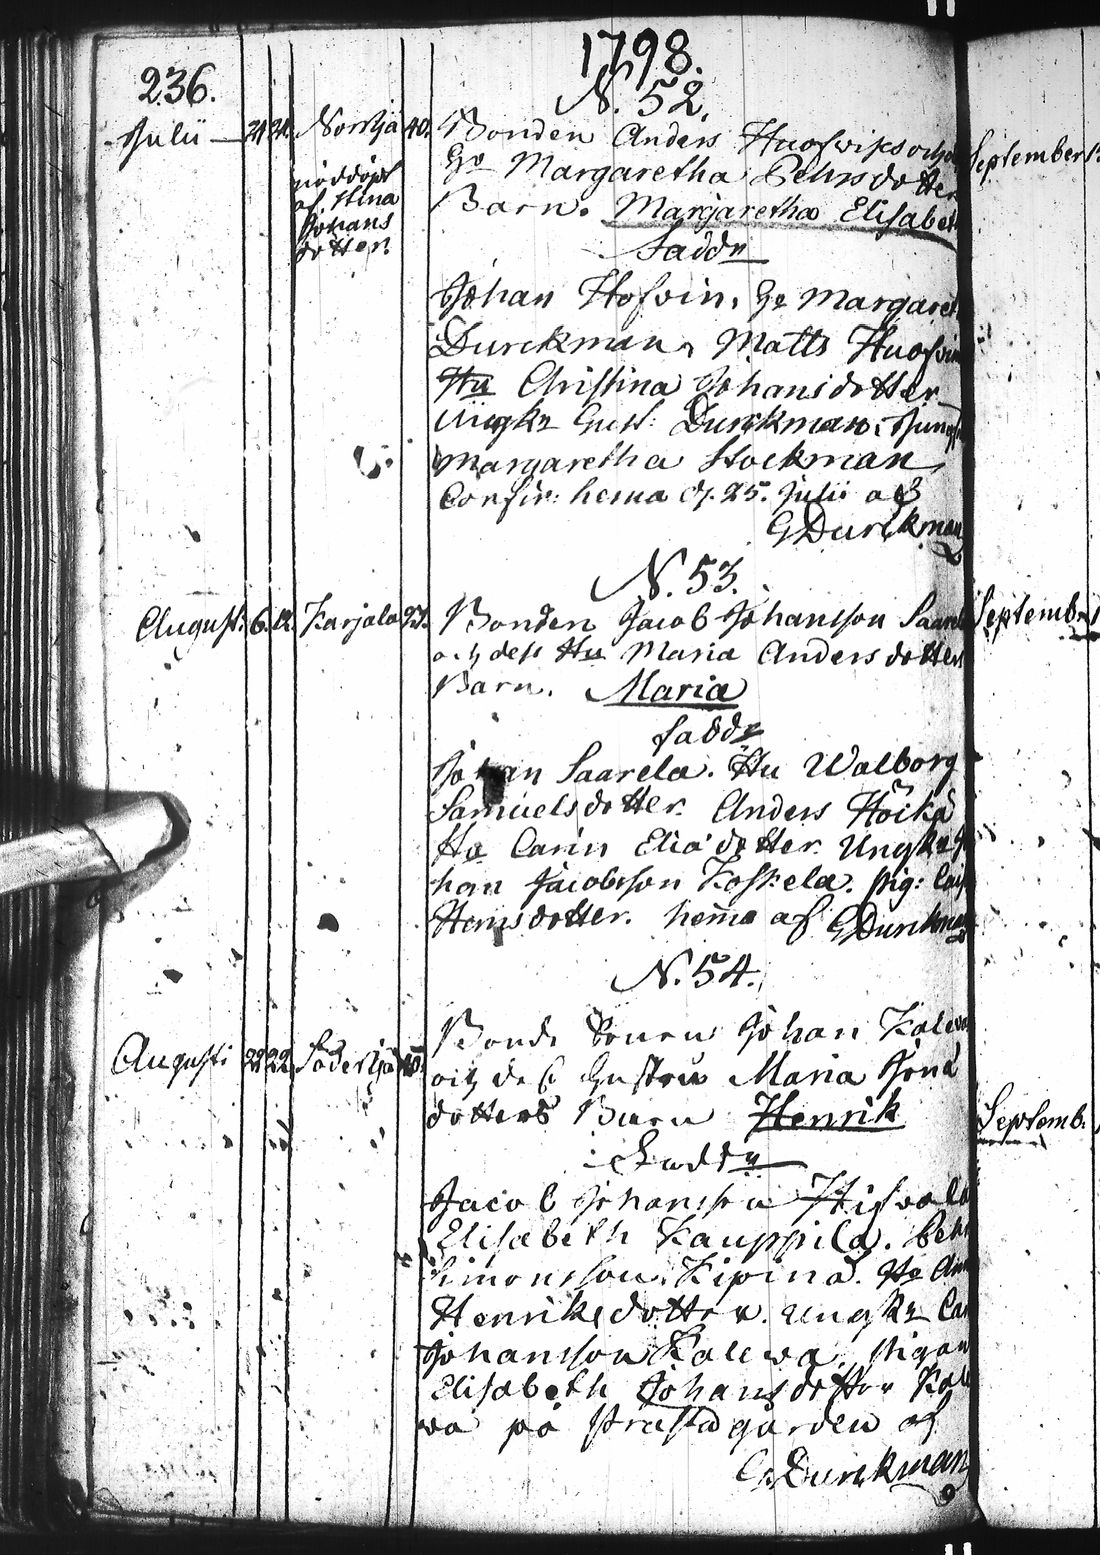 1798.
236.
N. 52.
Julii 21 24 Norrbÿ 40. Bonden Anders Huofwiks och
Hu Margaretha Pehrsdotter
Barn. Margaretha Elisabeth
nöddöpt
af Stina
Johans
dotter.
Faddr
Johan Hofvin, Hu Margareth
Durckman, Matts Huofvin
Hu Christina Johansdotter
Ungkr Gust: Durckman. Jungf
Margaretha Stockman
Confir: hema d. 25. Julii af
GDurckman
N. 53.
August: 6. 12. Karjala 23. Bonden Jacob Johansson Saarela
och dess Hu Maria Andersdotters
Barn. Maria
faddr
Johan Saarela. Hu Walborg
Samuelsdotter. Anders Höikä
Hu Carin Eliædotter. Ungkr Jo
han Jacobsson Koskela. Pig: Cais
Hemsdotter. hema af GDurckman
N. 54.
Augusti 22 22. Söderbÿ 40. Bonde Sonen Johan Kaleva
och dess Hustru Maria
dotters Barn Henrik
Faddr
Jacob Johansson
Elisabeth Kauppila. Pehr
Simonsson Kipinä. Hu Ann
Henriksdotter. Ungkr Car
Johansson Kaleva, Pigan
Elisabeth Johansdotter Kale
va på Prästgården af
GDurckman
September
September
Septemb.